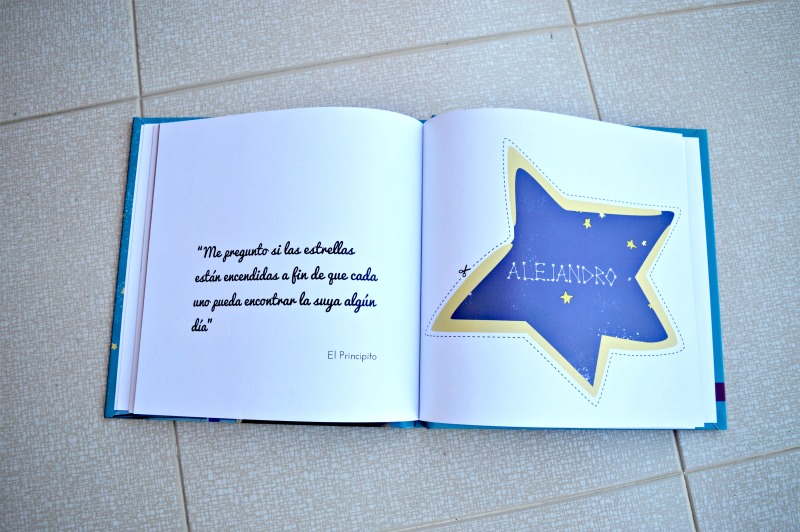 "Me pregunto si las estrellas
están encendidas a fin de que cada
uno pueda encontrar la suya algún
día"
El Principito
ALEJANDRO